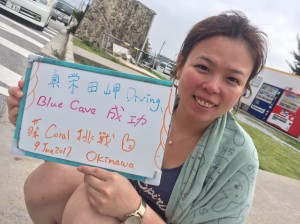 真栄田岬 Diving
Blue Cave 成功
蘇 Coral 挑戰
9 Jun 2017 Okinawa